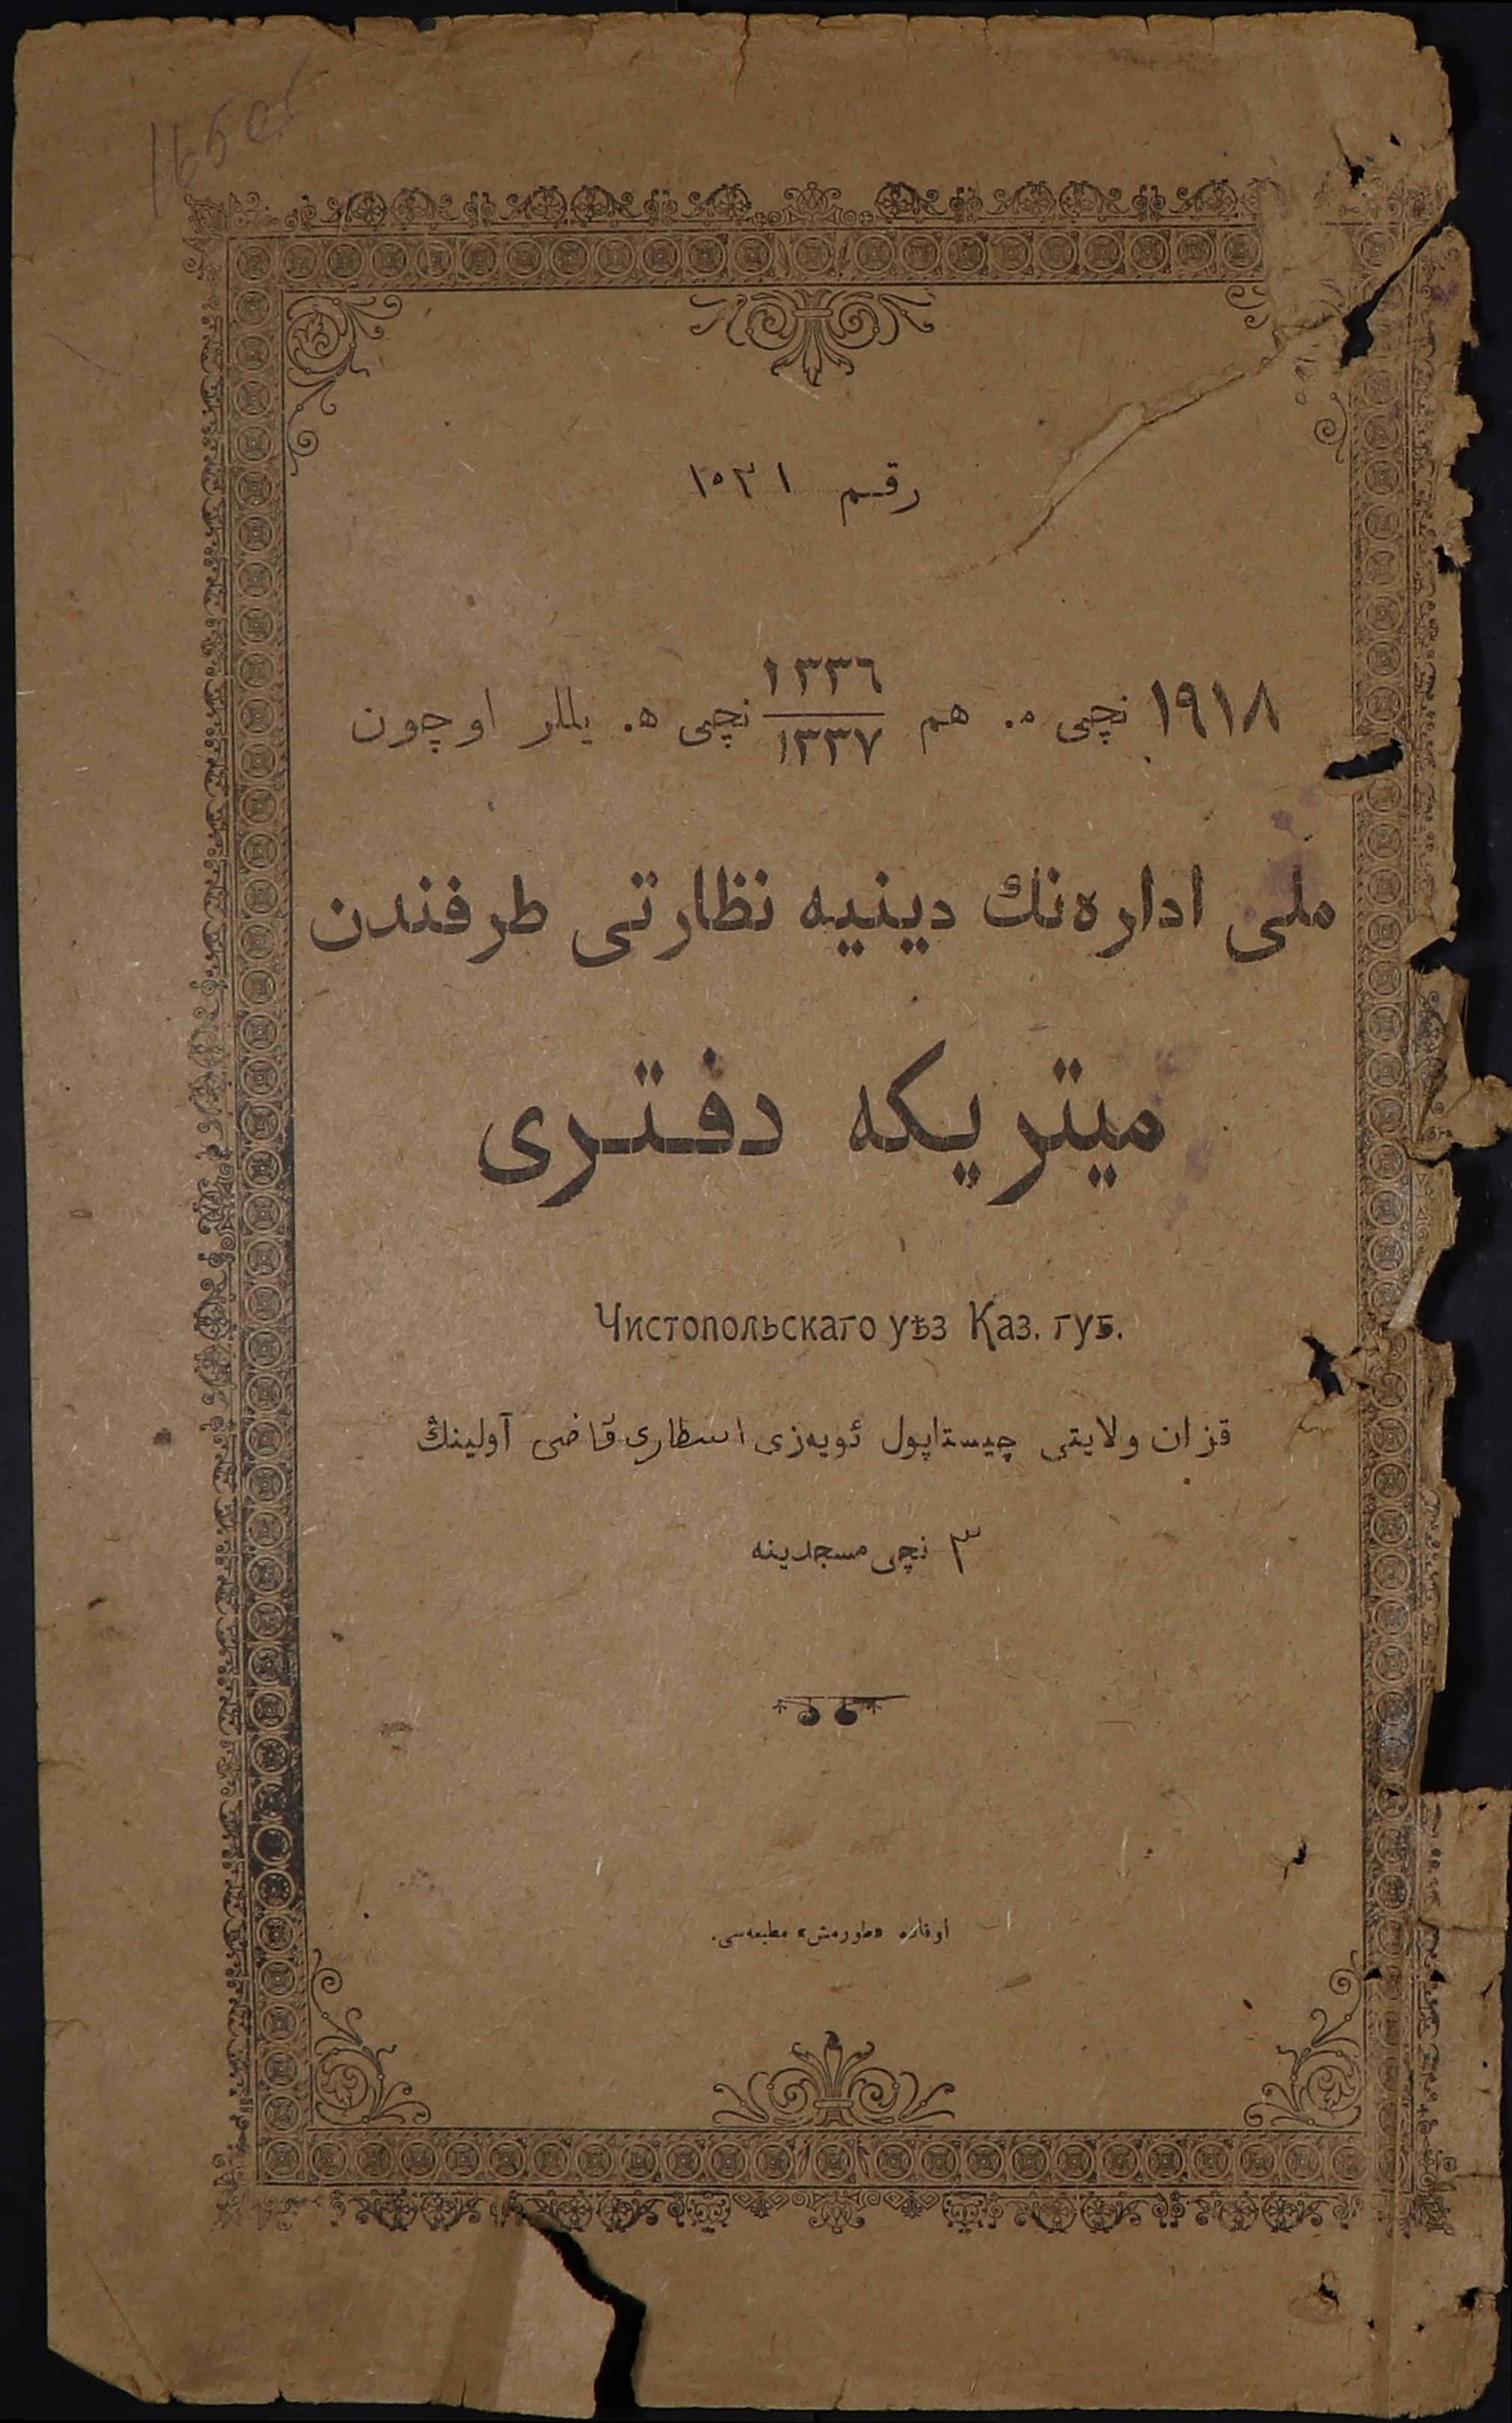 165 с.
رقم ١٥٣١
١٩١٨ نچی م. هم ١٣٣٦/١٣٣٧ نچی ه. يللر اوچون
ملی ادارەنڭ دينيه نظارتی طرفندن
ميتريكه دفتری
Чистопольскаго уѣз Каз. губ.
قزان ولايتی چيستاپول ئويەزی اسطاری قاضی آولينڭ
٣ نچی مسجدينه
اوفاده «طورمش» مطبعەسی.